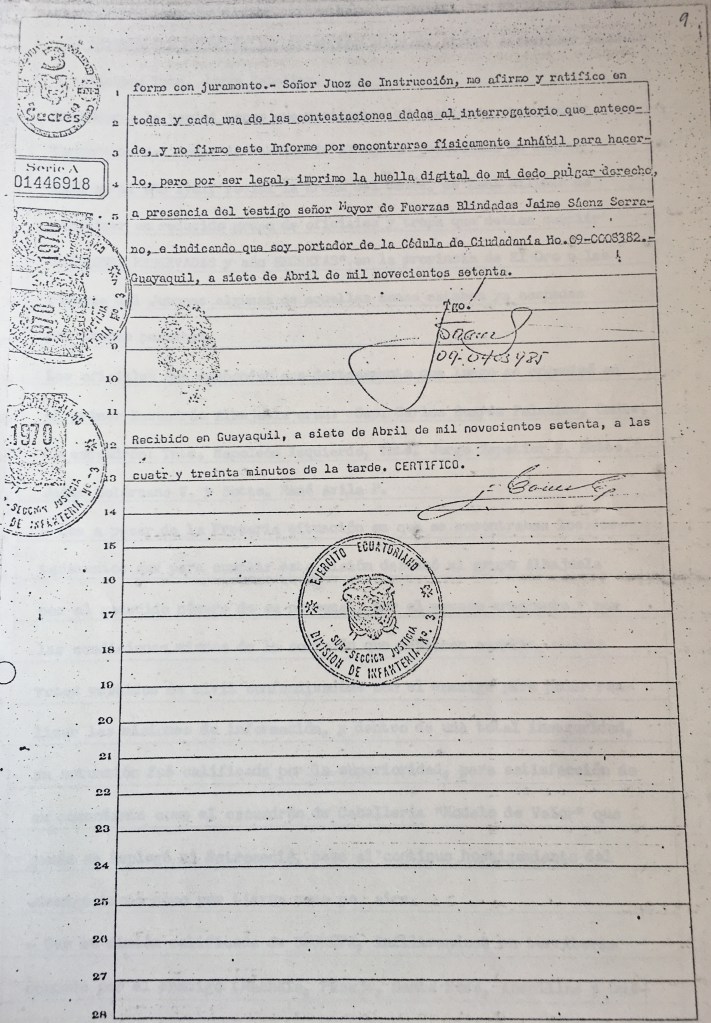 9
Sucres
Serie A
01446918
1 forme con juramento.- Señor Juez de Instrucción, me afirmo y ratifico en
2 todas y cada una de las contestaciones dadas al interrogatorio que antece-
3 de, y no firmo este Informe por encontrarse físicamente inhábil para hacer-
4 lo, pero por ser legal, imprimo la huella digital de mi dedo pulgar derecho,
5 a presencia del testigo señor Mayor de Fuerzas Blindadas Jaime Sáenz Serra-
no, e indicando que soy portador de la Cédula de Ciudadanía No.09-0008382.-
Guayaquil, a siete de Abril de mil novecientos setenta.
1970
1970
SECCION JUSTICIA
Nº 3
Tgo.
09-0403485
9
10
11
12 Recibido en Guayaquil, a siete de Abril de mil novecientos setenta, a las
13 cuatr y treinta minutos de la tarde. CERTIFICO.
1970
SECCION JUSTICIA
DE INFANTERIA Nº 3
14
15
16
17
18
19
EJERCITO ECUATORIANO
SUB-SECCION JUSTICIA
DIVISION DE INFANTERIA Nº 3
20
21
22
23
24
25
26
27
28